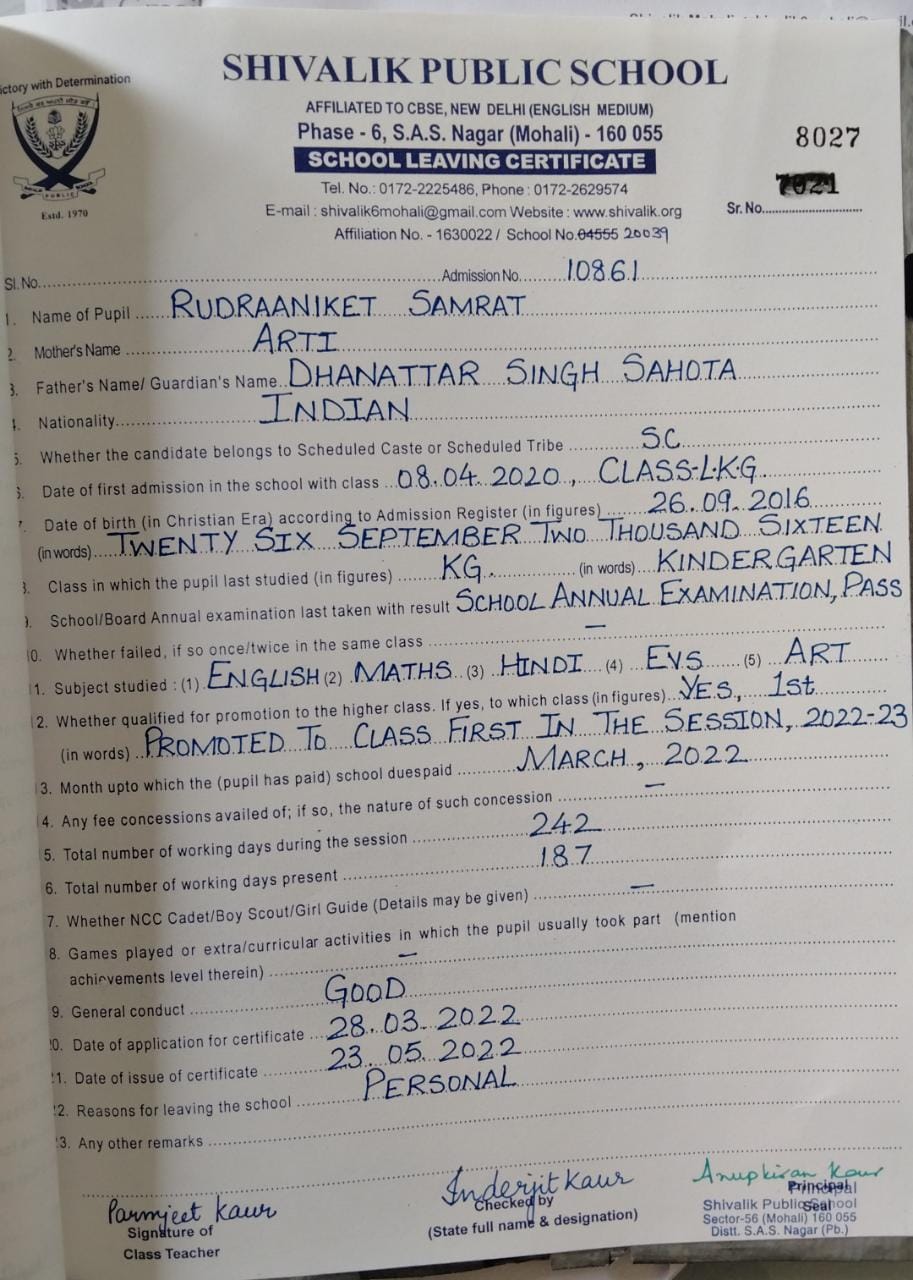 ictory with Determination
SHIVALIK PUBLIC SCHOOL
AFFILIATED TO CBSE, NEW DELHI (ENGLISH MEDIUM)
Phase - 6, S.A.S. Nagar (Mohali) - 160 055
8027
SCHOOL LEAVING CERTIFICATE
7021
Tel. No.: 0172-2225486, Phone : 0172-2629574
E-mail : shivalik6mohali@gmail.com Website : www.shivalik.org
Sr. No.
Estd. 1970
Affiliation No. - 1630022 / School No. 04555 20039
Sl. No. Admission No. 10861
1. Name of Pupil RUDRAANIKET SAMRAT
2. Mother's Name ARTI
3. Father's Name/ Guardian's Name DHANATTAR SINGH SAHOTA
4. Nationality INDIAN
5. Whether the candidate belongs to Scheduled Caste or Scheduled Tribe SC
6. Date of first admission in the school with class 08.04.2020, CLASS-L.K.G
7. Date of birth (in Christian Era) according to Admission Register (in figures) 26.09.2016
(in words) TWENTY SIX SEPTEMBER TWO THOUSAND SIXTEEN
8. Class in which the pupil last studied (in figures) KG. (in words) KINDERGARTEN
9. School/Board Annual examination last taken with result SCHOOL ANNUAL EXAMINATION, PASS
0. Whether failed, if so once/twice in the same class –
1. Subject studied : (1) ENGLISH (2) MATHS (3) HINDI (4) EVS (5) ART
2. Whether qualified for promotion to the higher class. If yes, to which class (in figures) YES, 1st
(in words) PROMOTED TO CLASS FIRST IN THE SESSION, 2022-23
3. Month upto which the (pupil has paid) school duespaid MARCH, 2022
4. Any fee concessions availed of; if so, the nature of such concession –
5. Total number of working days during the session 242
6. Total number of working days present 187
7. Whether NCC Cadet/Boy Scout/Girl Guide (Details may be given) –
8. Games played or extra/curricular activities in which the pupil usually took part (mention
achievements level therein) –
9. General conduct GOOD
0. Date of application for certificate 28.03.2022
1. Date of issue of certificate 23.05.2022
2. Reasons for leaving the school PERSONAL
3. Any other remarks
Parmjeet Kaur Inderjit Kaur Anupkiran Kaur
Signature of Checked by Principal
Class Teacher (State full name & designation) Seal
Shivalik Public School
Sector-56 (Mohali) 160 055
Distt. S.A.S. Nagar (Pb.)